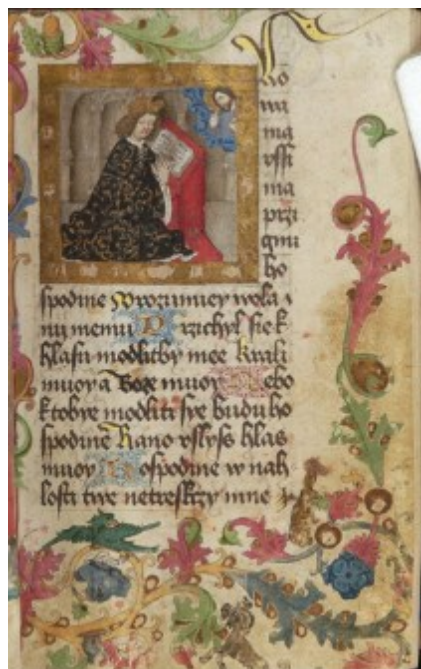 lo
wa
ma
vssi
ma
przi
gmi
ho
spodine Wyrozumiey wola
ni memu Przichyl sie k
hlasu modlitby mee Krali
muoy a Boze muoy Nebo
k tobye modliti sye budu ho
spodine Rano vslyss hlas
muoy Hospodine w nah
losti twe netreskcy mne